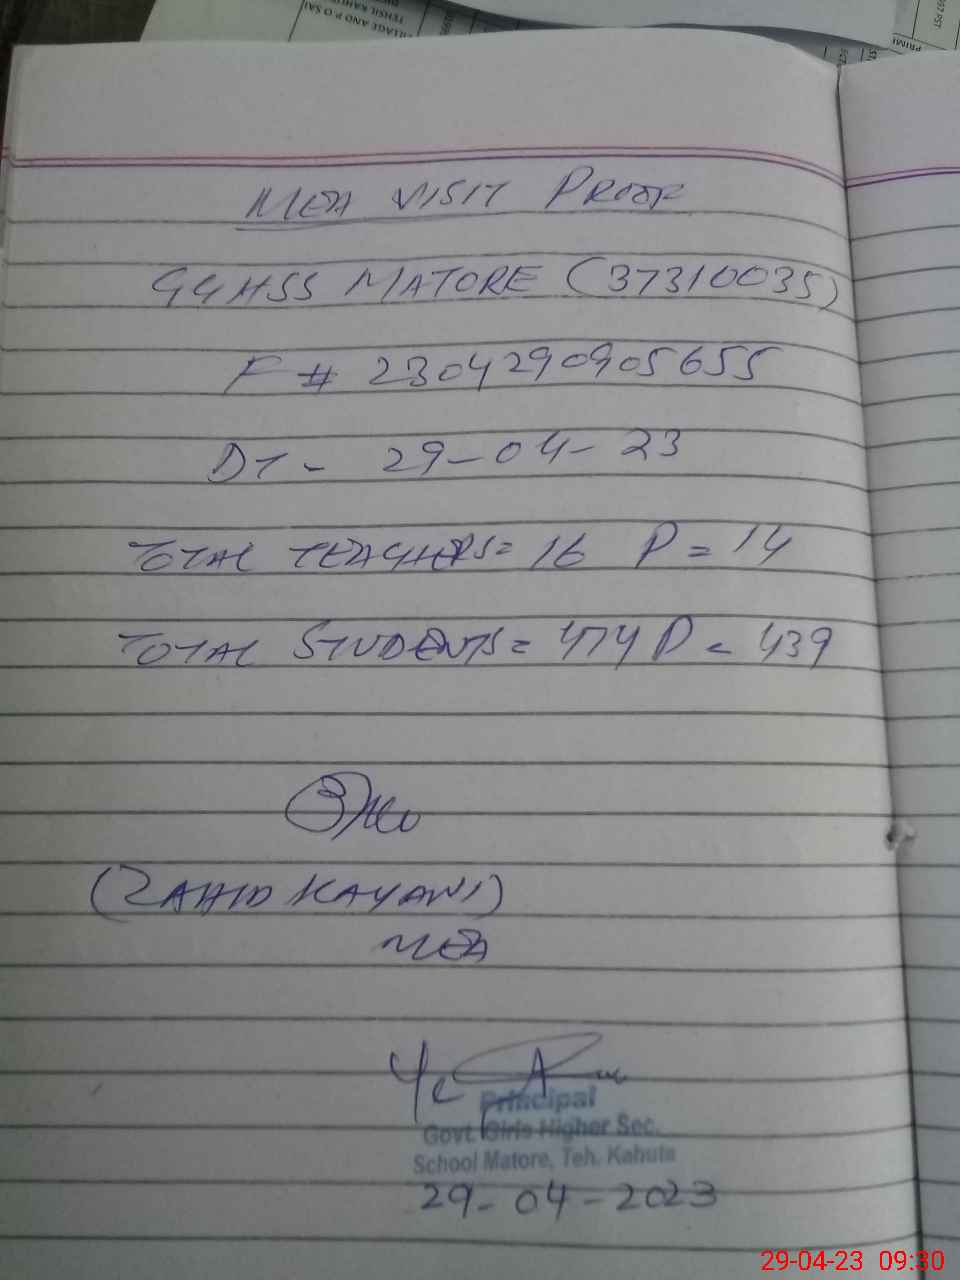 TEHSIL KAHU
ILLAGE AND P.O SAI
PRIM
MEA VISIT PROOF
GGHSS MATORE (37310035)
F # 2304290905655
DT - 29-04-23
TOTAL TEACHERS = 16 P = 14
TOTAL STUDENTS = 474 P = 439
(ZAHID KAYANI)
MEA
Principal
Govt. Girls Higher Sec.
School Matore, Teh. Kahuta
29-04-2023
29-04-23 09:30